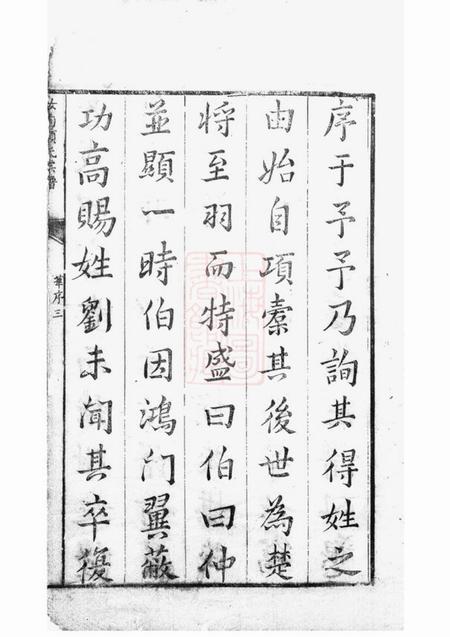 序于予予乃詢其得姓之
由始自項橐其後世為楚
将至羽而特盛曰伯曰仲
並顯一時伯因鴻门翼蔽
功高賜姓劉未聞其卒復
華序三